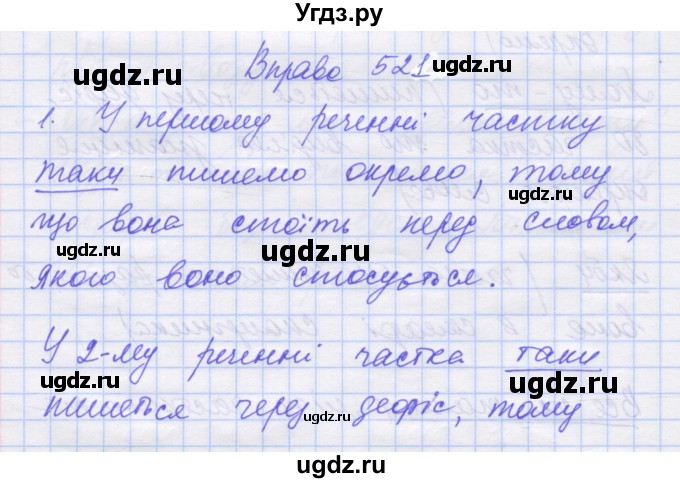 Угдз.ру
Вправа 521
ugdz.ru ugdz.ru
1. У першому реченні частку
таки пишемо окремо, тому
ugdz.ru ugdz.ru
що вона стоїть перед словом,
ugdz.ru ugdz.ru
якого воно стосується.
У 2-му реченні частка таки
ugdz.ru ugdz.ru
пишеться через дефіс, тому
ugdz.ru
ugdz.ru